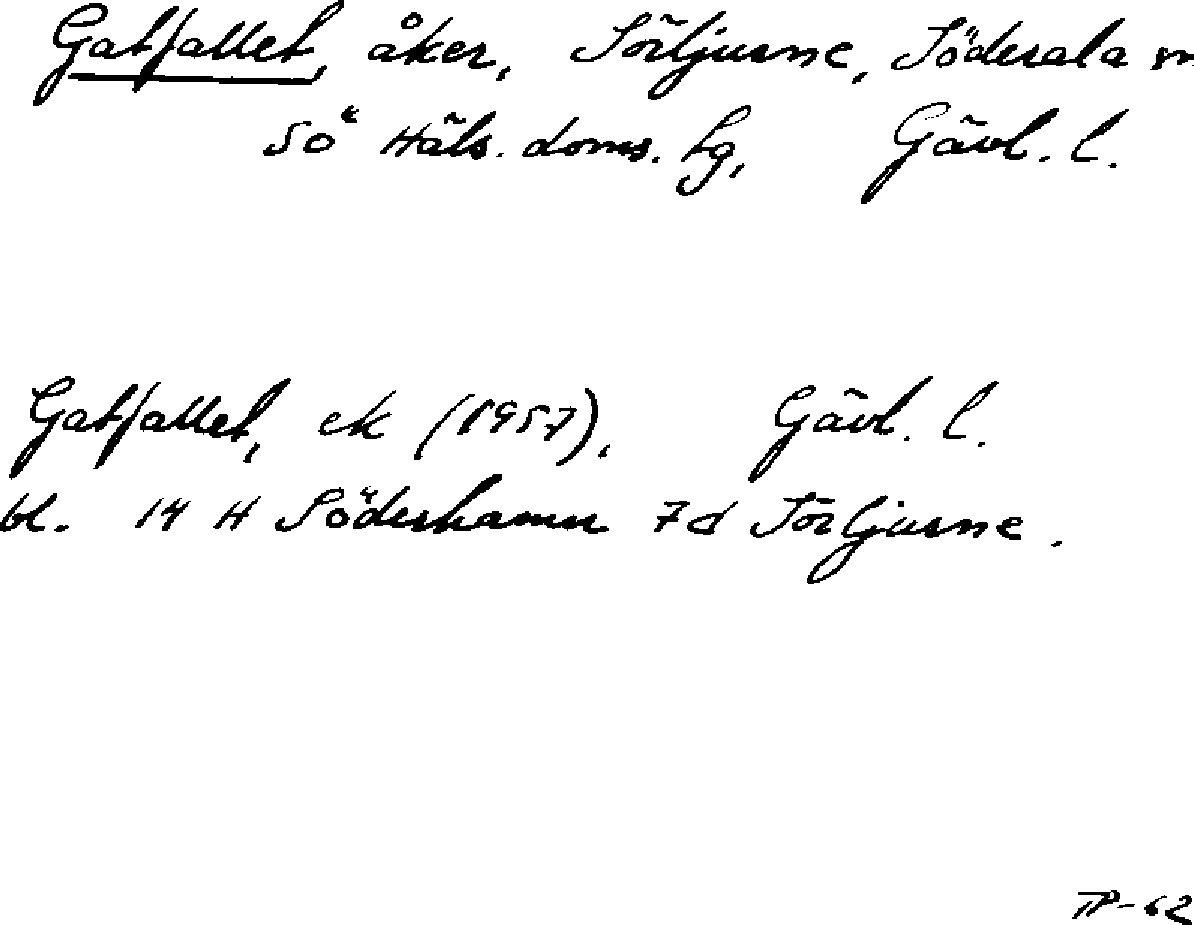 Gatfallet, åker, Sörljusne, Söderala sn
Sö Häls. doms. hg, Gävl. l.
Gatfallet, ek (1957), Gävl. l.
bl. 14 H Söderhamn 7d Sörljusne.
TP-62